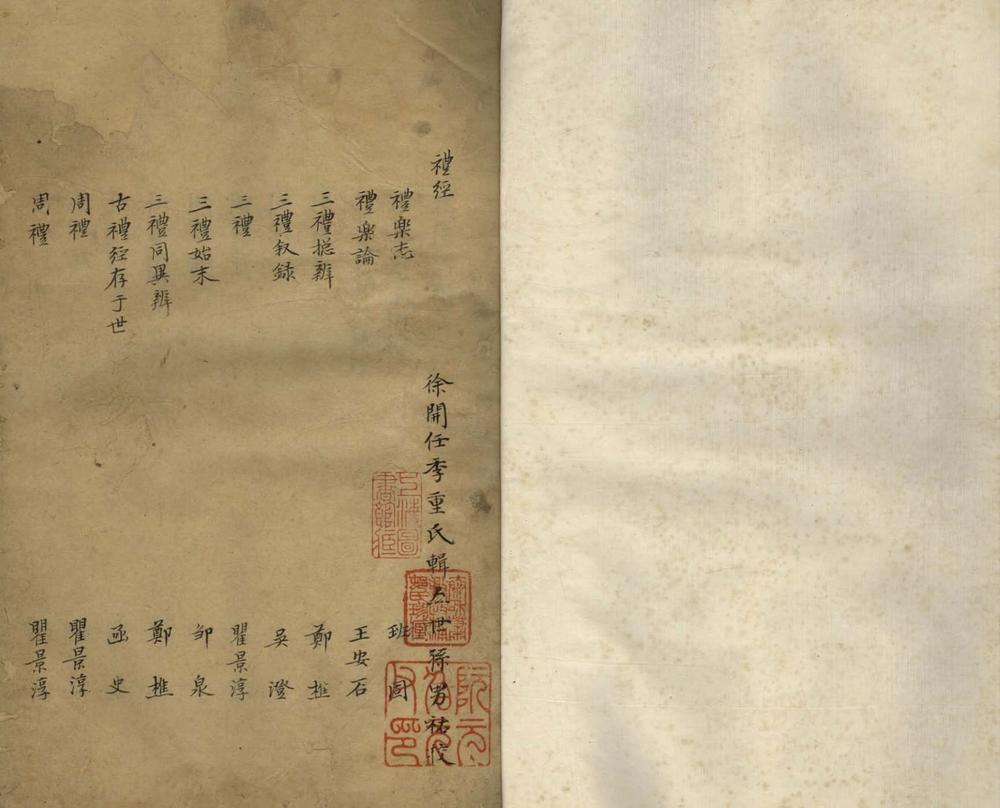 禮經
徐開任季重氏輯 五世孫男祐茂
禮樂志 班固
禮樂論 王安石
三禮總辨 鄭樵
三禮叙録 吳澄
三禮 瞿景淳
三禮始末 邹泉
三禮同異辨 鄭樵
古禮經存于世 函史
周禮 瞿景淳
周禮 瞿景淳
阮元